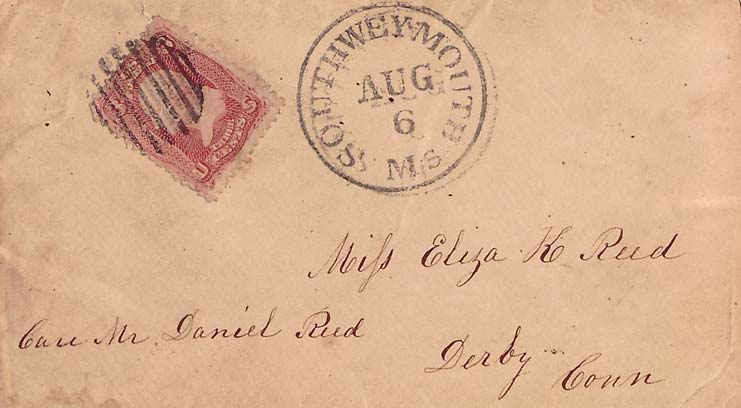 SOUTH WEYMOUTH Ms.
AUG
6
Miss Eliza K Reed
Care Mr. Daniel Reed
Derby Conn